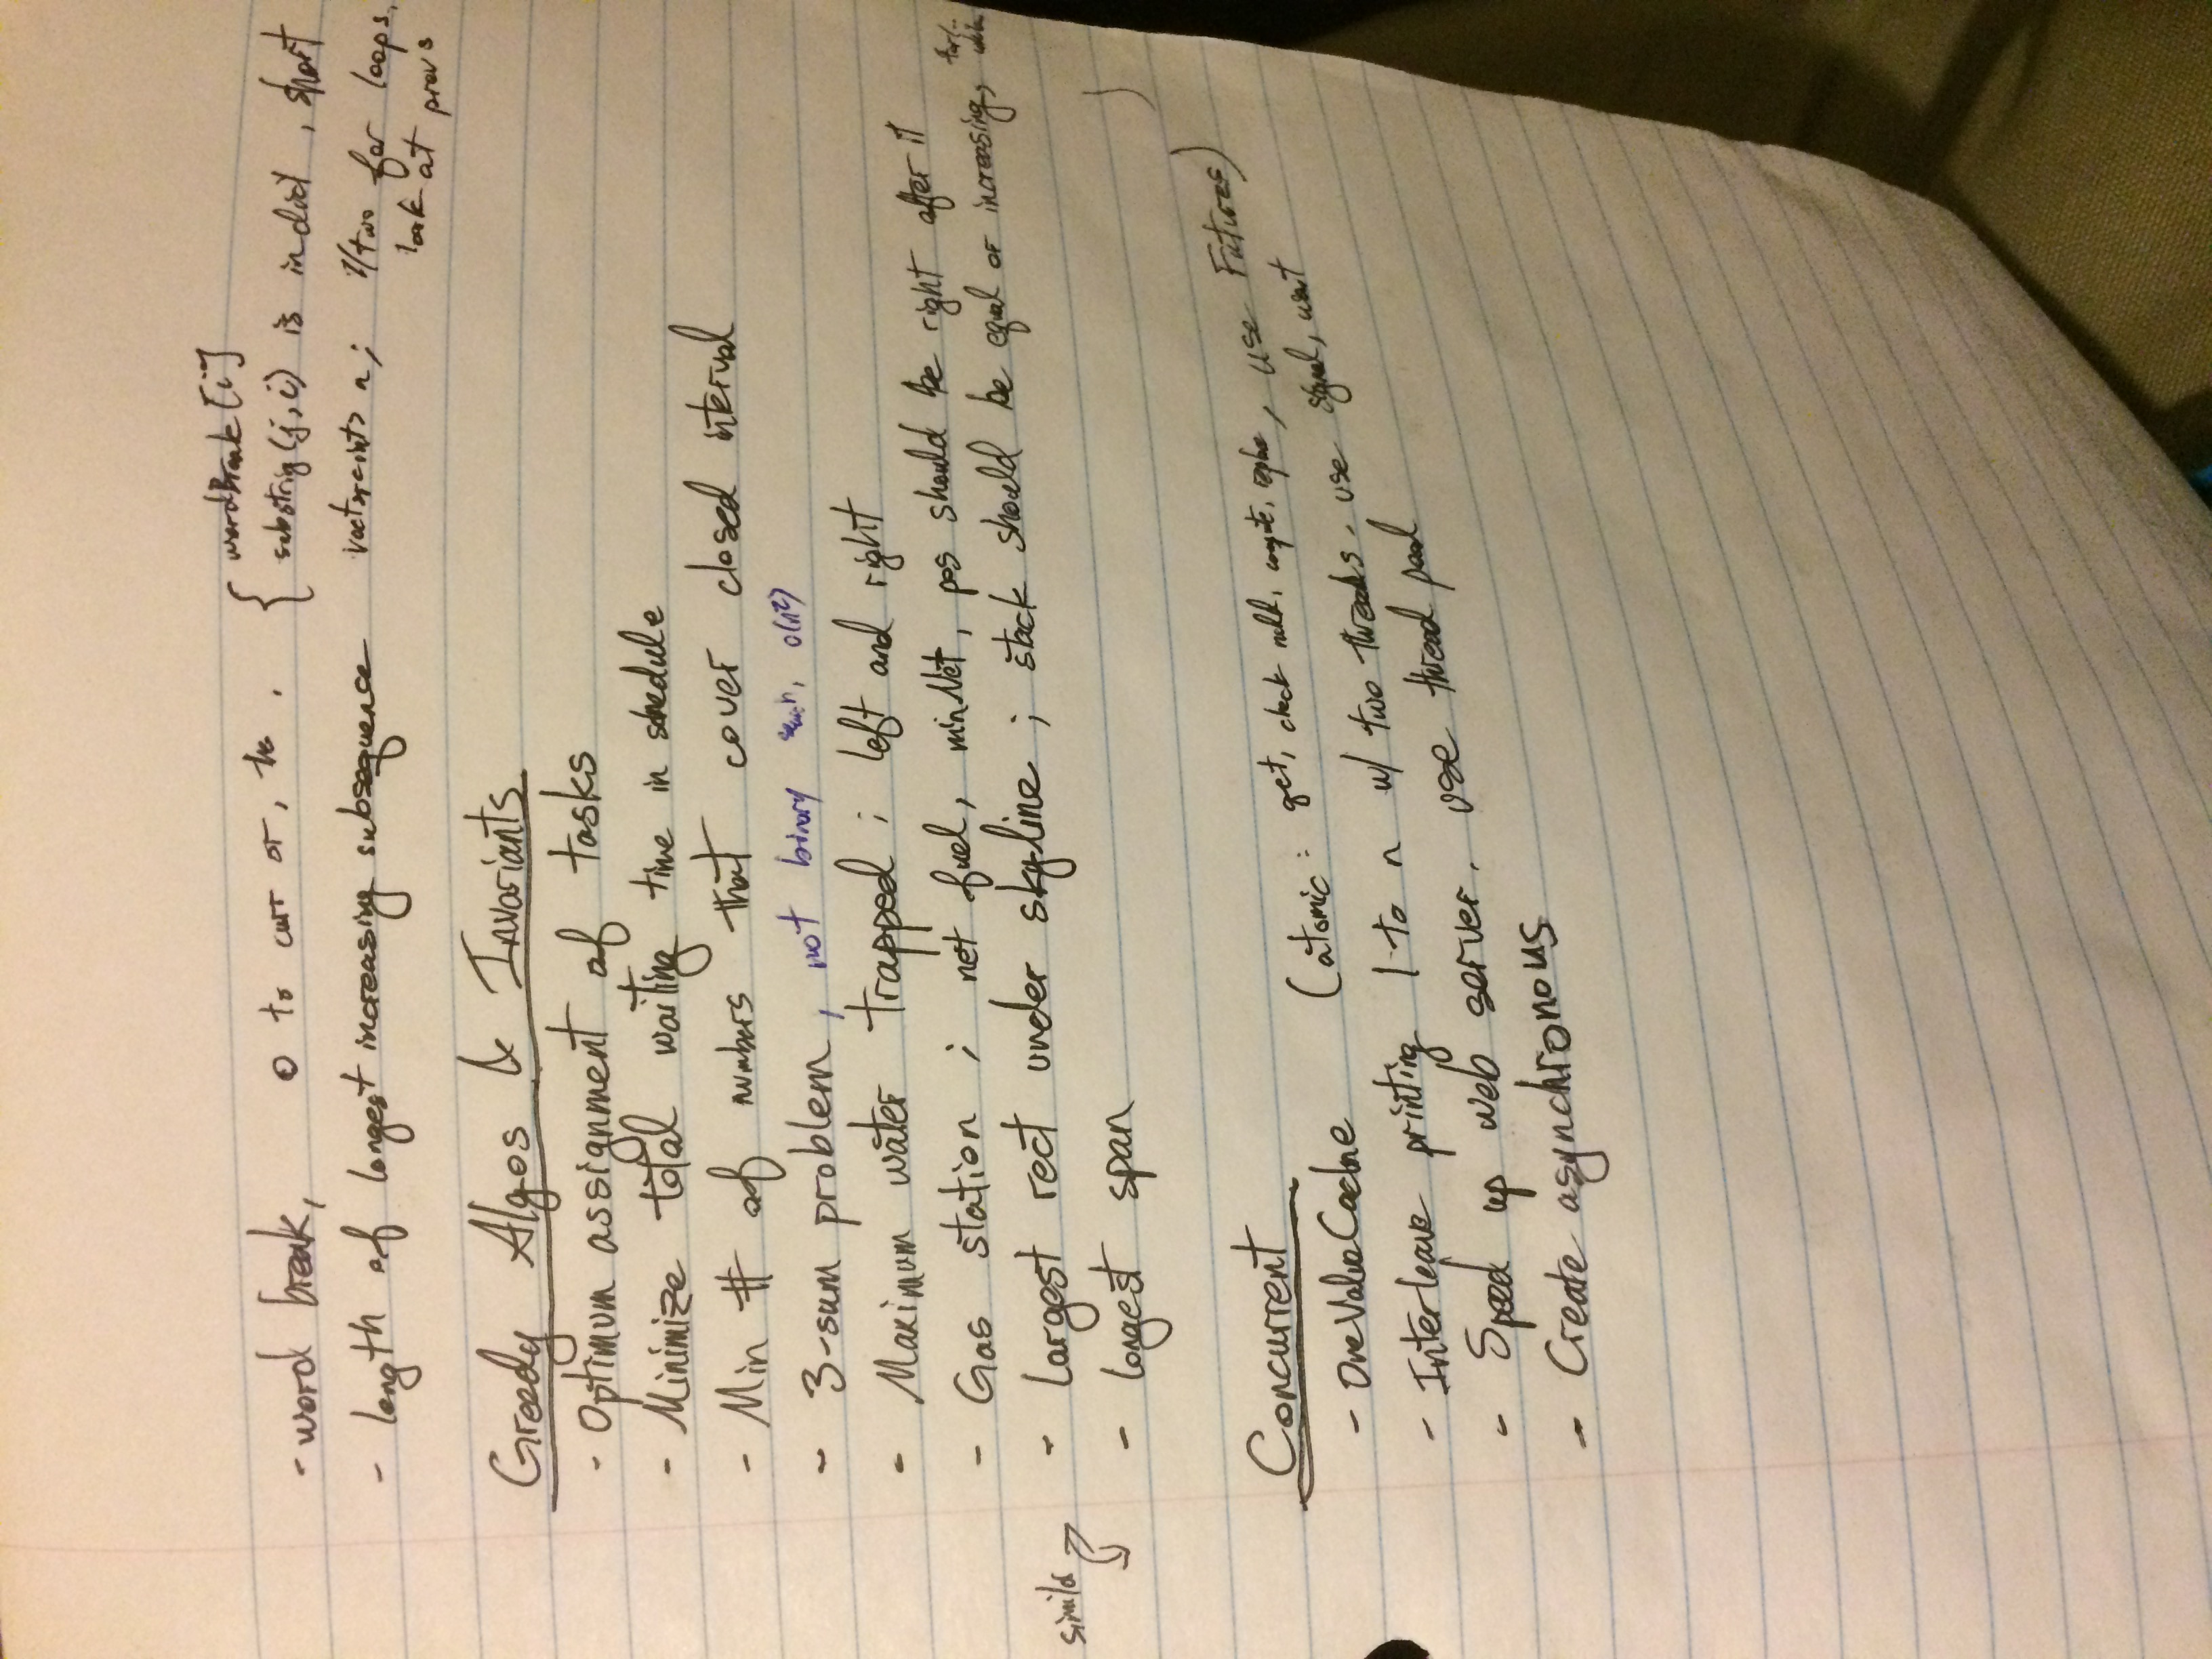 wordBreak[i]
- word break, 0 to curr or, { substrig(j,i) is in dict, short
- length of longest increasing subsequence vector<int> n; //two for loops,
look at prevs
Greedy Algos & Invariants
- Optimum assignment of tasks
- Minimize total waiting time in schedule
- Min # of numbers that cover closed interval
- 3-sum problem, not binary search, O(n²)
- Maximum water trapped ; left and right
- Gas station ; net fuel, minNet, pos should be right after it
- Largest rect under skyline ; stack should be equal or increasing, for(..
similar
- longest span
Concurrent
- OneValueCache (atomic: get, check null, compute, replace, use Futures)
- Interleave printing 1 to n w/ two threads. use signal, wait
- Speed up web server. use thread pool
- Create asynchronous